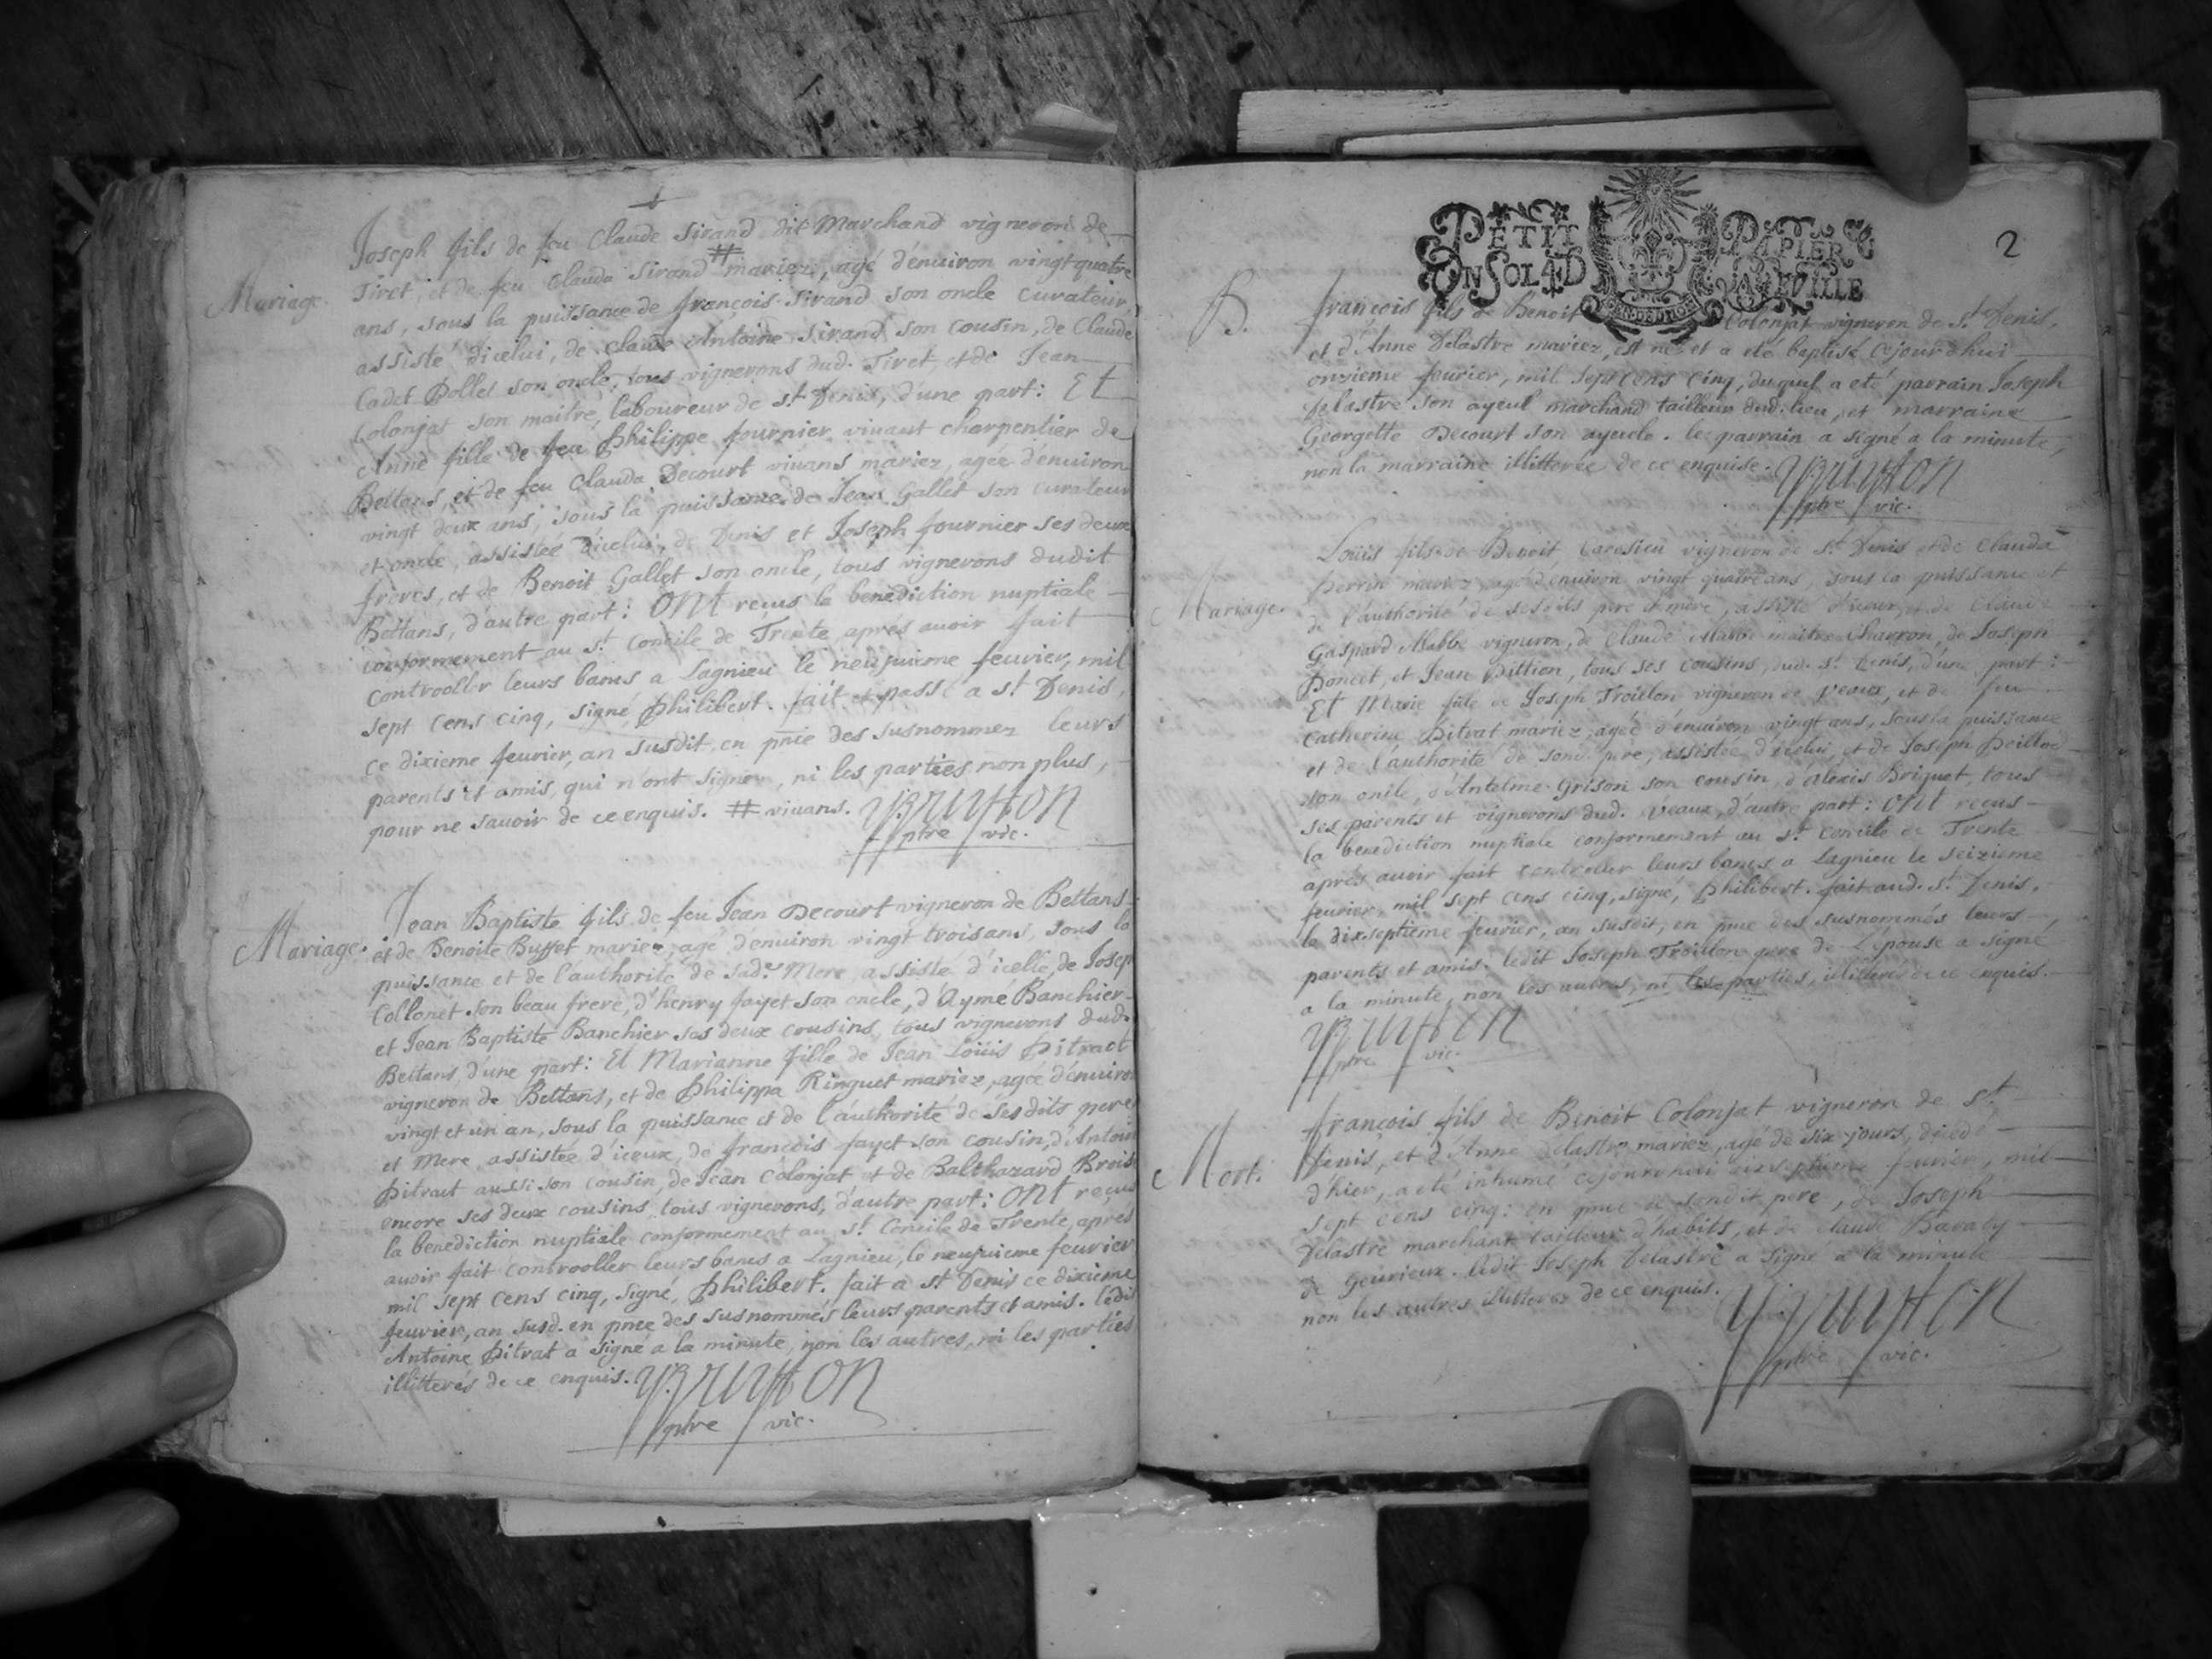 Mariage.
Joseph fils de feu Claude Sirand dit Marchand vigneron de
Tiret, et de feu Clauda Sirand # mariez, agé d'enuiron vingt quatre
ans, sous la puissance de françois Sirand son oncle curateur,
assisté d'icelui, de Claude Antoine Sirand son cousin, de Claude
Cadet Dollet son oncle, tous vignerons dud. Tiret, et de Jean
Colonjat son maitre, laboureur de st Denis, d'une part: Et
Anne fille de feu Philippe fournier viuant charpentier de
Bettans, et de feu Clauda Decourt viuans mariez, agée d'enuiron
vingt deux ans, sous la puissance de Jean Gallet son curateur
et oncle, assistée d'icelui, de Denis et Joseph fournier ses deux
freres, et de Benoit Gallet son oncle, tous vignerons dudit
Bettans, d'autre part: ONt reçus la benediction nuptiale
conformement au st Concile de Trente apres auoir fait
controoller leurs bancs a Lagnieu le neufuieme feurier, mil
sept cens cinq, signé Philibert. fait et passé a st Denis,
ce dixieme feurier, an susdit, en pnce des susnommez leurs
parents et amis, qui n'ont signer, ni les parties non plus,
pour ne sauoir de ce enquis. # viuans. Bruyson
ptre vic.
Mariage.
Jean Baptiste fils de feu Jean Decourt vigneron de Bettans
et de Benoite Buffet mariez, agé d'enuiron vingt trois ans, sous la
puissance et de l'authorité de sad. Mere, assisté d'icelle, de Josep
Collonet son beau frere, d'henry fayet son oncle, d'Aymé Banchier
et Jean Baptiste Banchier ses deux cousins, tous vignerons dud.
Bettans, d'une part: Et Marianne fille de Jean Loüis Pitract
vigneron de Bettans, et de Philippa Ringuet mariez, agée d'enuiron
vingt et un an, sous la puissance et de l'authorité de ses dits pere
et Mere, assistée d'iceux, de françois fayet son cousin, d'Antoine
Pitract aussi son cousin, de Jean Colonjat et de Balthazard
encore ses deux cousins tous vignerons, d'autre part: ONt reçus
la benediction nuptiale conformement au st. Concile de Trente, apres
auoir fait controoller leurs bancs a Lagnieu, le neufuieme feurier
mil sept cens cinq, signé, Philibert. fait a st Denis ce dixieme
feurier, an susd. en pnce des susnommés leurs parents et amis. ledit
Antoine Pitrat a signé a la minute, non les autres, ni les parties
illitterés de ce enquis. Bruyson
ptre vic.
PETIT PAPIER
UN SOL 4 D LA FEUILLE
2
B.
françois fils de Benoit Colonjat vigneron de st Denis,
et d'Anne Delastre mariez, est né et a eté baptisé cejourdhui
onzieme feurier, mil sept cens cinq, duquel a eté parrain Joseph
Delastre son ayeul marchand tailleur dud. lieu, et marraine
Georgette Decourt son ayeule. le parrain a signé a la minute,
non la marraine illitterée de ce enquise. Bruyson
ptre vic.
Mariage.
Loüis fils de Benoit vigneron de st Denis et de Clauda
Perrin mariez, agé d'enuiron vingt quatre ans, sous la puissance et
de l'authorité de sesdits pere et mere, assisté d'iceux, et de Claude
Gaspard Mabbe vigneron, de Claude Mabbe maitre Charron, de Joseph
Poncet, et Jean Dittion, tous ses cousins dud. st Denis, d'une part:
Et Marie fille de Joseph Troillon vigneron de veaux, et de feu
Catherine Pitrat mariez, agée d'enuiron vingt ans, sous la puissance
et de l'authorité de sond. pere, assistée d'icelui, et de Joseph
son oncle, d'Antelme Grison son cousin, d'Alexis Briguet, tous
ses parents et vignerons dud. veaux, d'autre part: ONt reçus
la benediction nuptiale conformement au st. Concile de Trente
apres auoir fait controller leurs bancs a Lagnieu le seizieme
feurier, mil sept cens cinq, signé, Philibert. fait aud. st. Denis,
le dixseptieme feurier, an susdit, en pnce des susnommés leurs
parents et amis. ledit Joseph Troillon pere de L'epouse a signé
a la minute, non les autres, ni les parties, illitterés de ce enquis.
Bruyson
ptre vic.
Mort.
françois fils de Benoit Colonjat vigneron de st.
Denis, et d'Anne Delastre mariez, agé de six jours, decedé
d'hier, a eté inhumé cejourdhui dixseptieme feurier, mil
sept cens cinq: en pnce de sondit pere, de Joseph
Delastre marchant tailleur d'habits, et de Claude
de Geurieux. ledit Joseph Delastre a signé a la minute
non les autres illitterez de ce enquis.
Bruyson
ptre vic.